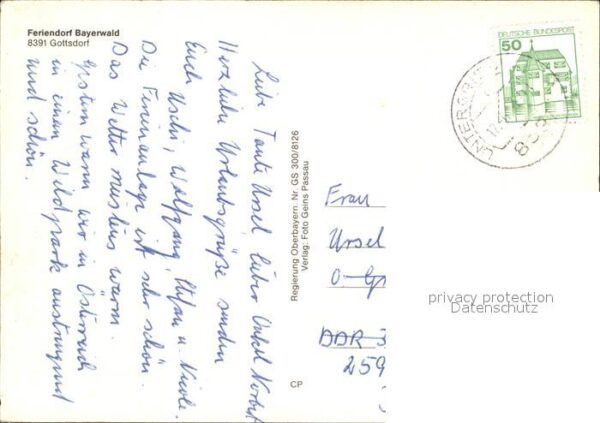 Feriendorf Bayerwald
8391 Gottsdorf
Liebe Tante Ursel, lieber Onkel Norbert
Herzliche Urlaubsgrüße senden
Euch Uschi, Wolfgang, Stefan u. Nicole.
Die Ferienanlage ist sehr schön.
Das Wetter meistens warm.
Gestern waren wir in Österreich
in einem Wildpark anstrengend
und schön.
Regierung Oberbayern. Nr. GS 300/8126
Verlag: Foto Geins Passau
CP
50
DEUTSCHE BUNDESPOST
UNTERGR
Frau
Ursel
DDR
259
privacy protection
Datenschutz